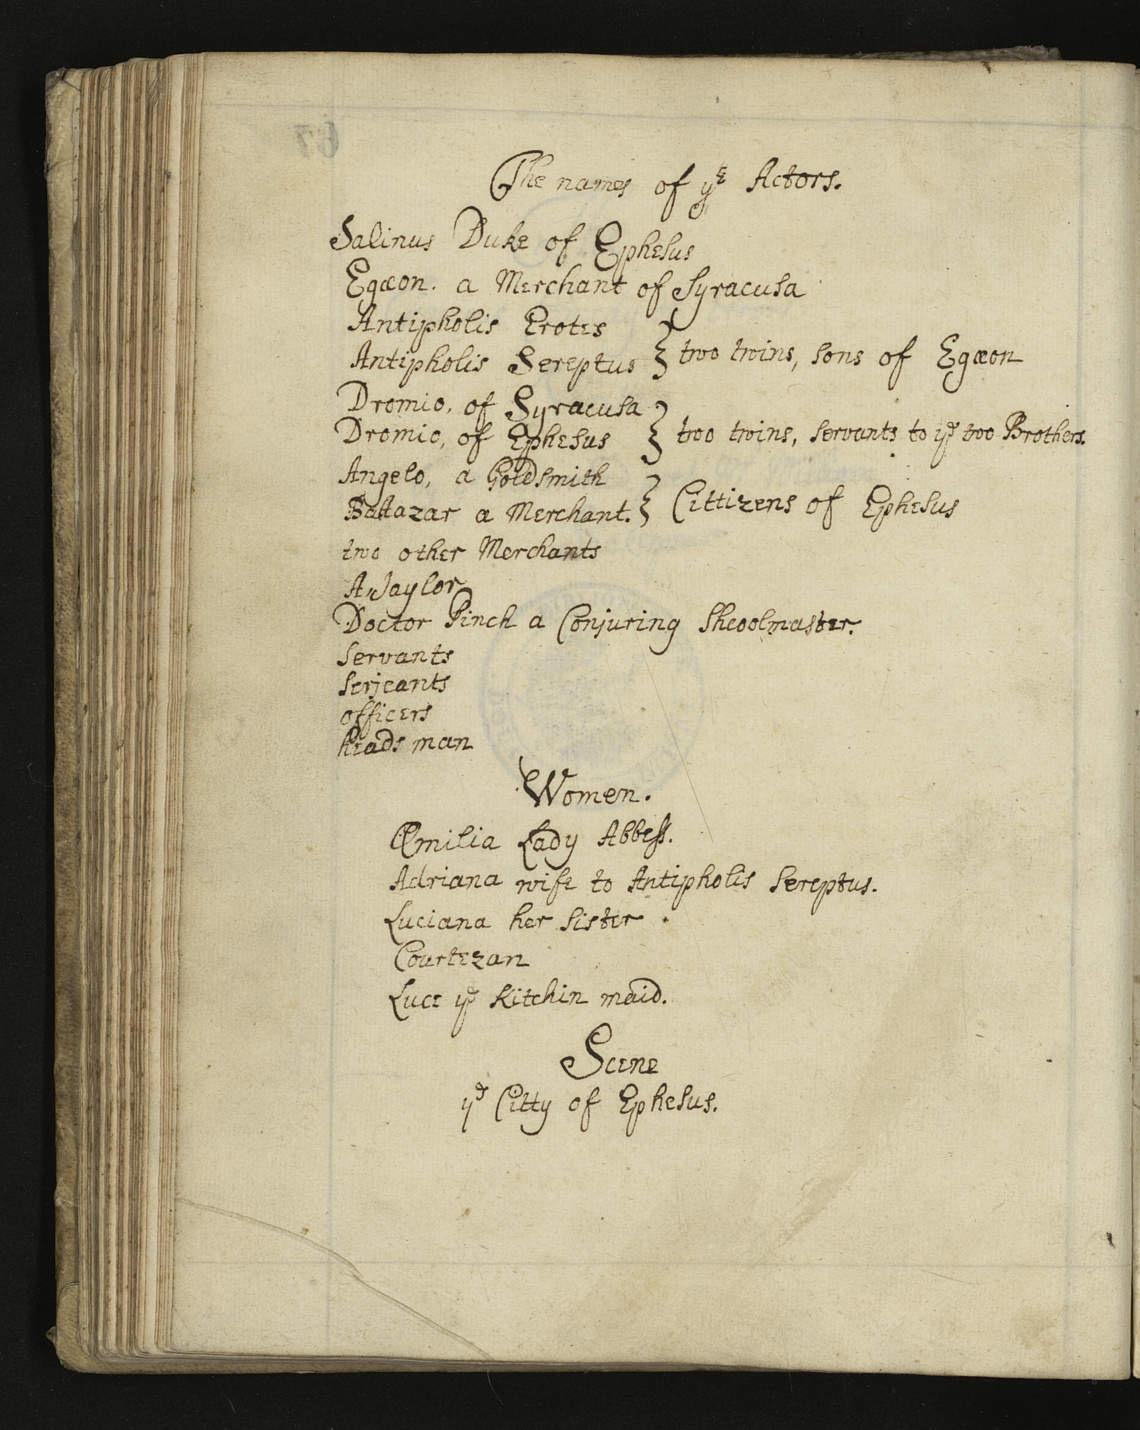 The names of yᵉ Actors.
Salinus Duke of Ephesus
Egæon. a Merchant of Syracusa
Antipholis Erotes
Antipholis Sereptus } two twins, sons of Egæon
Dromio, of Syracusa
Dromio, of Ephesus } two twins, servants to yᵉ two Brothers.
Angelo, a Goldsmith
Baltazar a Merchant. } Cittizens of Ephesus
two other Merchants
A Jaylor
Doctor Pinch a Conjuring Shcoolmaster.
Servants
Serjeants
officers
heads man
Women.
Æmilia Lady Abbess.
Adriana wife to Antipholis Sereptus.
Luciana her Sister.
Courtezan
Luce yᵉ Kitchin maid.
Scene
yᵉ Citty of Ephesus.